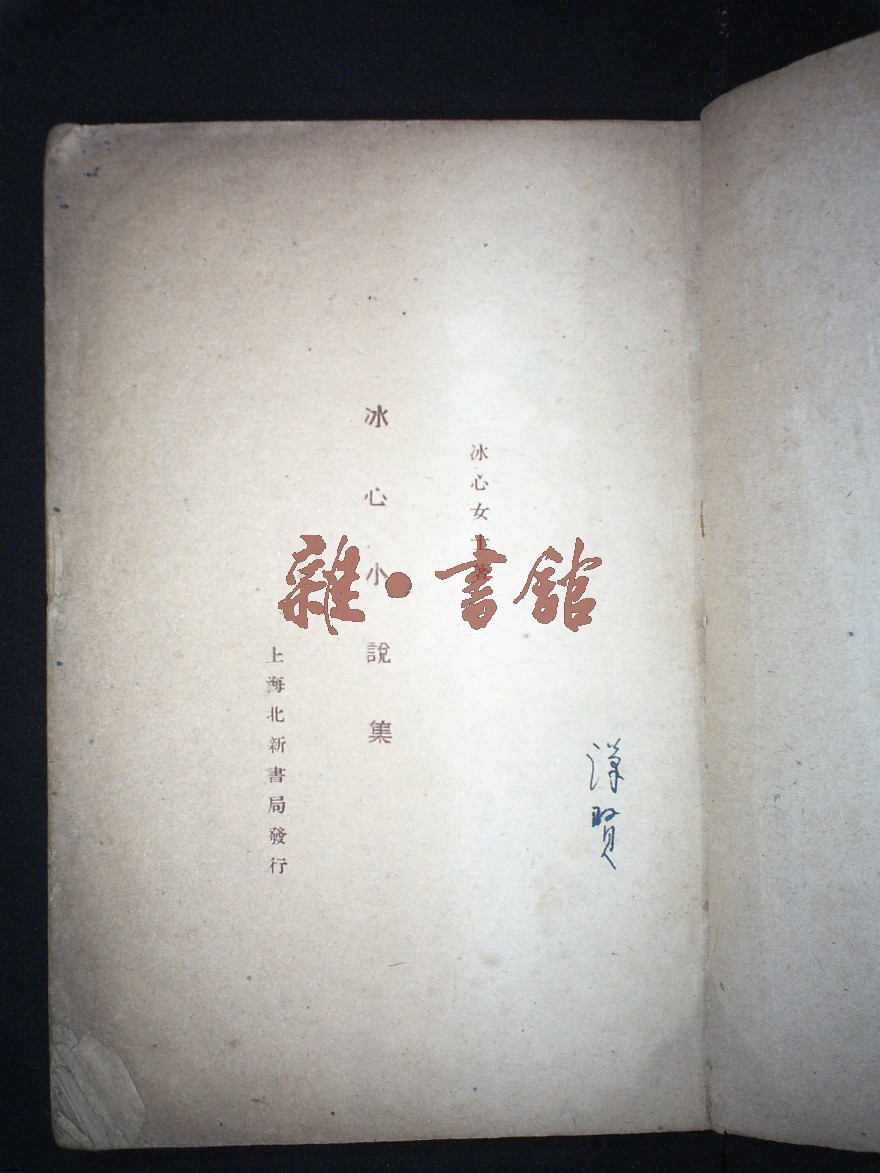 冰心女士著
冰心小說集
上海北新書局發行
雜·書館